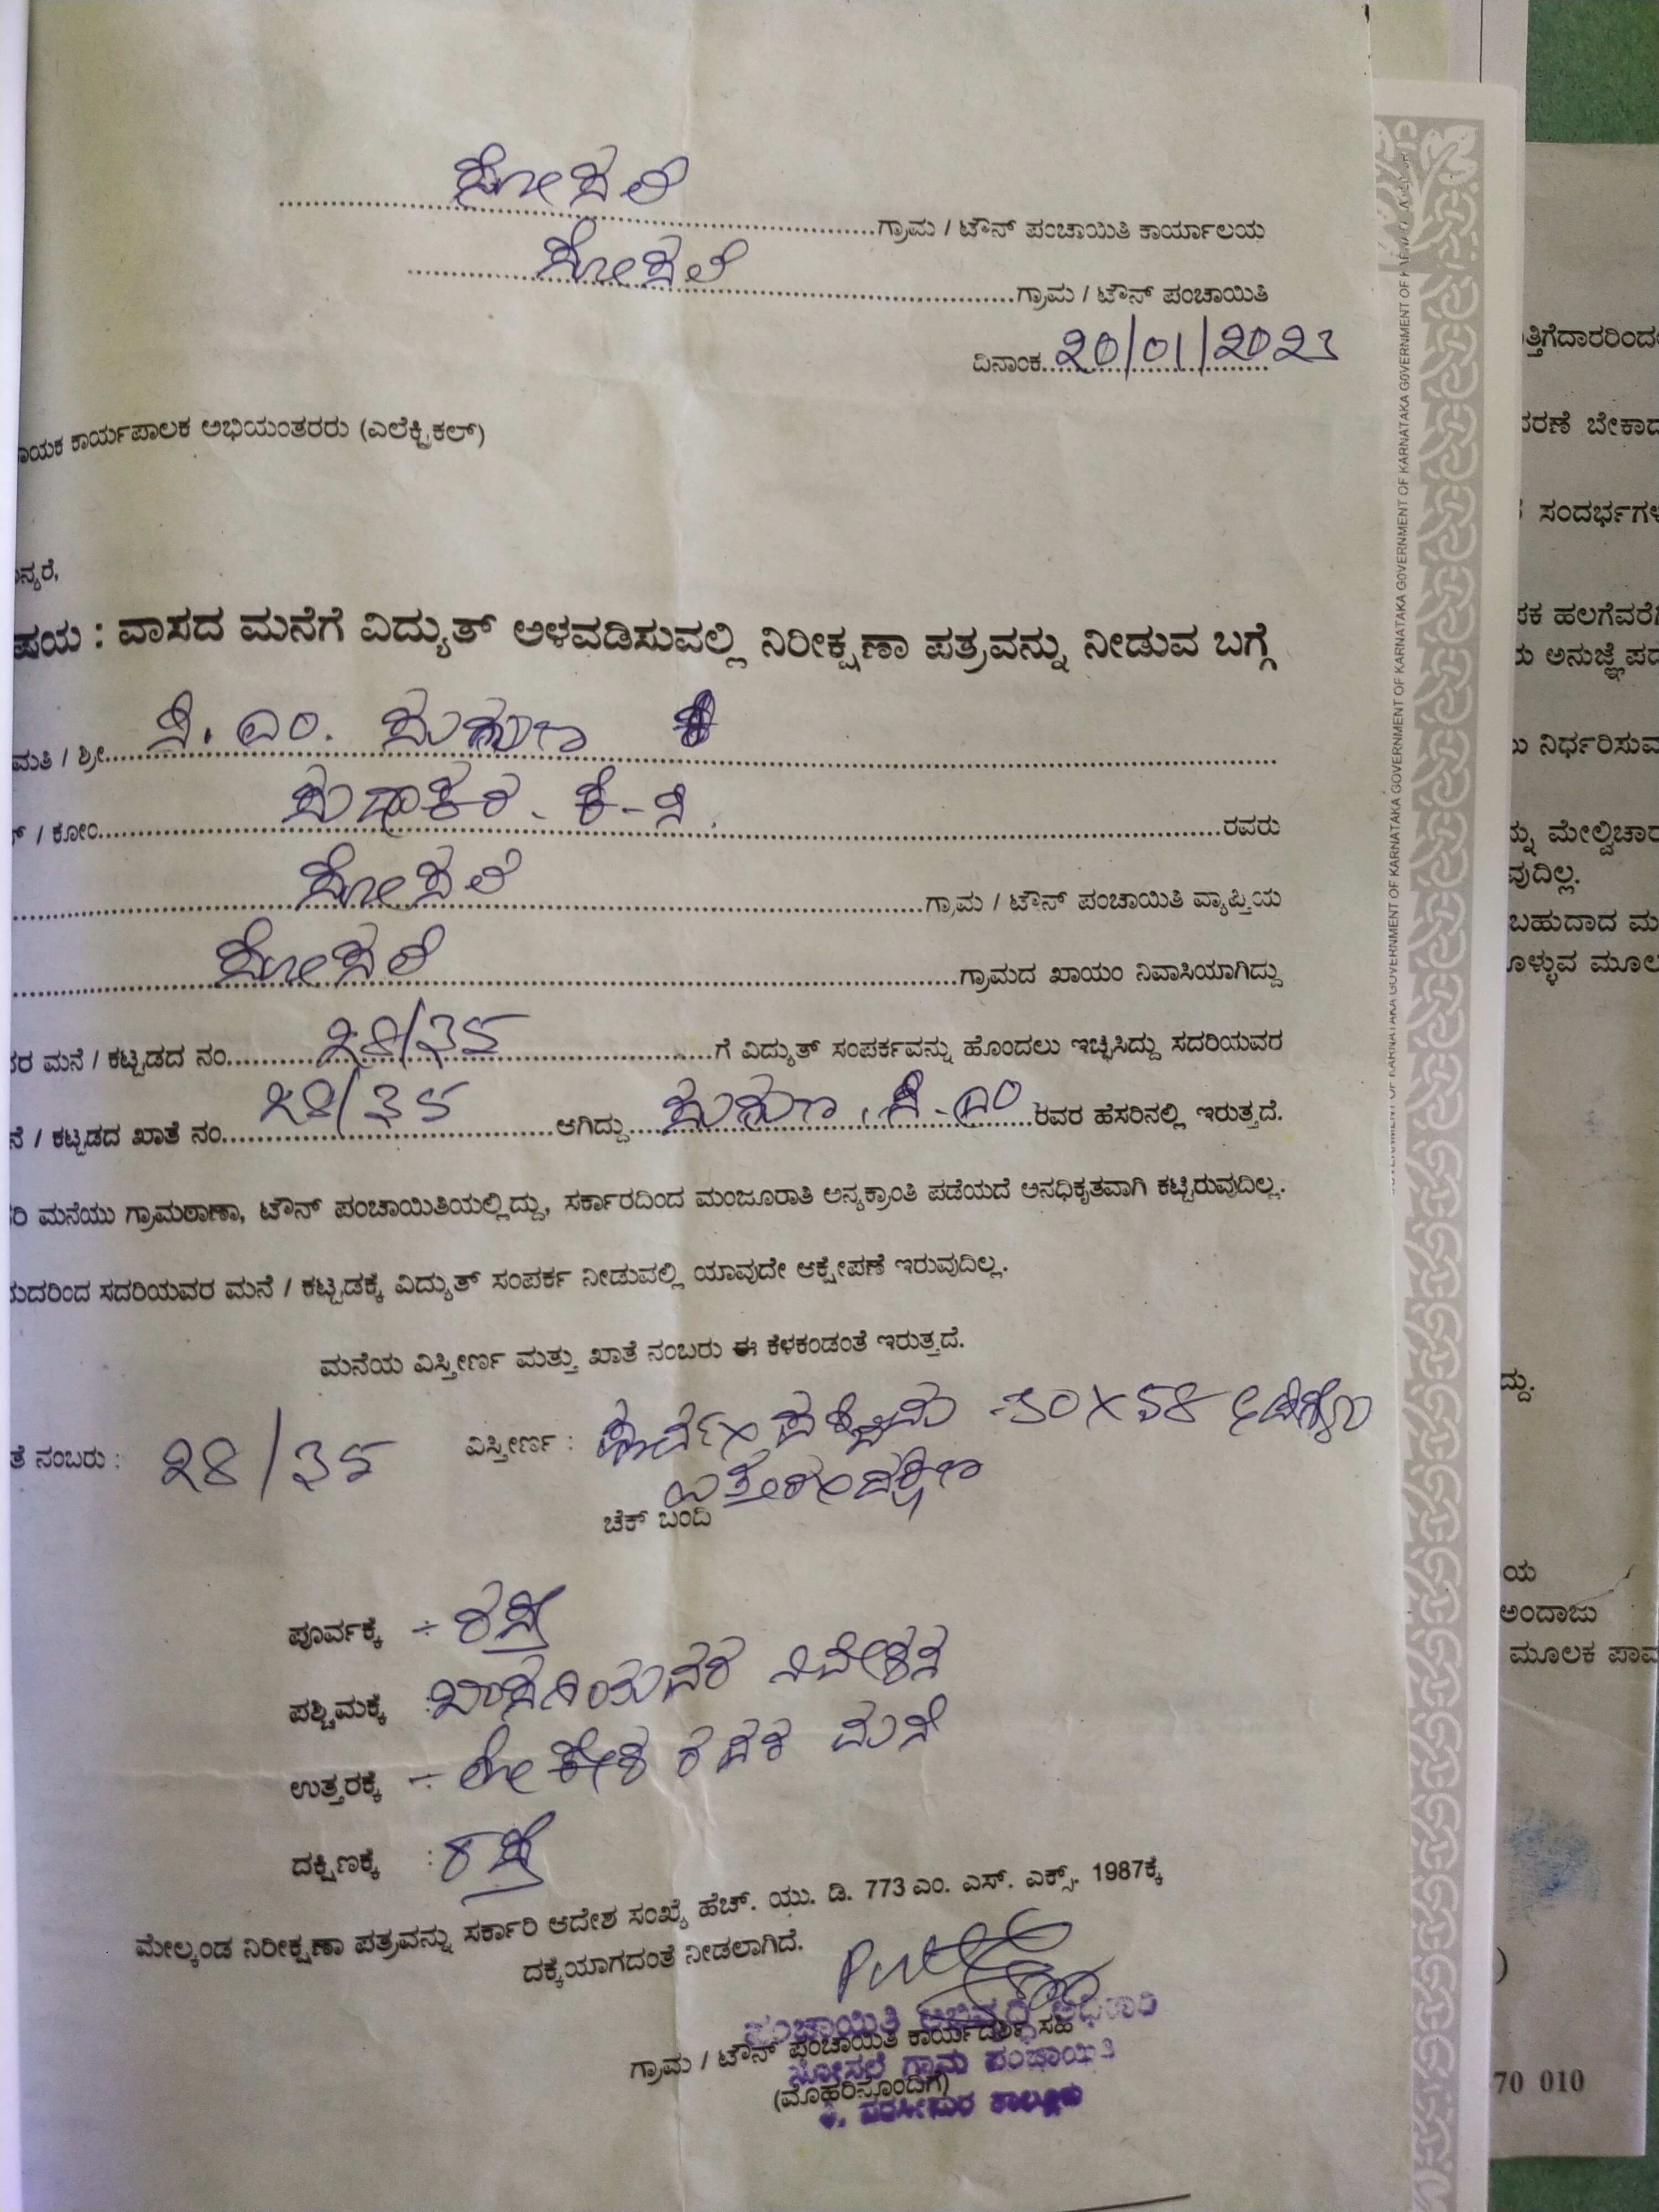 ಸೋಸಲೆ ಗ್ರಾಮ / ಟೌನ್ ಪಂಚಾಯಿತಿ ಕಾರ್ಯಾಲಯ
ಸೋಸಲೆ ಗ್ರಾಮ / ಟೌನ್ ಪಂಚಾಯಿತಿ
ದಿನಾಂಕ 20/01/2023
ಾಯಕ ಕಾರ್ಯಪಾಲಕ ಅಭಿಯಂತರರು (ಎಲೆಕ್ಟ್ರಿಕಲ್)
ನ್ಯರೆ,
ಷಯ : ವಾಸದ ಮನೆಗೆ ವಿದ್ಯುತ್ ಅಳವಡಿಸುವಲ್ಲಿ ನಿರೀಕ್ಷಣಾ ಪತ್ರವನ್ನು ನೀಡುವ ಬಗ್ಗೆ
ಮತಿ / ಶ್ರೀ ಸಿ. ಎಂ. ಸುಗುಣ
/ ಕೋಂ ಸುಧಾಕರ - ಕೆ - ಸಿ ರವರು
ಸೋಸಲೆ ಗ್ರಾಮ / ಟೌನ್ ಪಂಚಾಯಿತಿ ವ್ಯಾಪ್ತಿಯ
ಸೋಸಲೆ ಗ್ರಾಮದ ಖಾಯಂ ನಿವಾಸಿಯಾಗಿದ್ದು
ರ ಮನೆ / ಕಟ್ಟಡದ ನಂ 28/35 ಗೆ ವಿದ್ಯುತ್ ಸಂಪರ್ಕವನ್ನು ಹೊಂದಲು ಇಚ್ಛಿಸಿದ್ದು ಸದರಿಯವರ
ನೆ / ಕಟ್ಟಡದ ಖಾತೆ ನಂ 28/35 ಆಗಿದ್ದು ಸುಗುಣ . ಸಿ - ಎಂ ರವರ ಹೆಸರಿನಲ್ಲಿ ಇರುತ್ತದೆ.
ರಿ ಮನೆಯು ಗ್ರಾಮಠಾಣಾ, ಟೌನ್ ಪಂಚಾಯಿತಿಯಲ್ಲಿದ್ದು, ಸರ್ಕಾರದಿಂದ ಮಂಜೂರಾತಿ ಅನ್ಯಕ್ರಾಂತಿ ಪಡೆಯದೆ ಅನಧಿಕೃತವಾಗಿ ಕಟ್ಟಿರುವುದಿಲ್ಲ.
ುದರಿಂದ ಸದರಿಯವರ ಮನೆ / ಕಟ್ಟಡಕ್ಕೆ ವಿದ್ಯುತ್ ಸಂಪರ್ಕ ನೀಡುವಲ್ಲಿ ಯಾವುದೇ ಆಕ್ಷೇಪಣೆ ಇರುವುದಿಲ್ಲ.
ಮನೆಯ ವಿಸ್ತೀರ್ಣ ಮತ್ತು ಖಾತೆ ನಂಬರು ಈ ಕೆಳಕಂಡಂತೆ ಇರುತ್ತದೆ.
ತೆ ನಂಬರು : 28/35 ವಿಸ್ತೀರ್ಣ : ಪೂರ್ವ × ಪಶ್ಚಿಮ - 30 X 58
ಉತ್ತರ × ದಕ್ಷಿಣ
ಚೆಕ್ ಬಂದಿ
ಪೂರ್ವಕ್ಕೆ ÷ ರಸ್ತೆ
ಪಶ್ಚಿಮಕ್ಕೆ : ಖಾಸಗಿಯವರ ನಿವೇಶನ
ಉತ್ತರಕ್ಕೆ ÷ ಲೋಕೇಶ ರವರ ಮನೆ
ದಕ್ಷಿಣಕ್ಕೆ : ರಸ್ತೆ
ಮೇಲ್ಕಂಡ ನಿರೀಕ್ಷಣಾ ಪತ್ರವನ್ನು ಸರ್ಕಾರಿ ಆದೇಶ ಸಂಖ್ಯೆ ಹೆಚ್. ಯು. ಡಿ. 773 ಎಂ. ಎಸ್. ಎಕ್ಸ್. 1987ಕ್ಕೆ
ದಕ್ಕೆಯಾಗದಂತೆ ನೀಡಲಾಗಿದೆ.
ಪಂಚಾಯಿತಿ ಅಭಿವೃದ್ಧಿ ಅಧಿಕಾರಿ
ಗ್ರಾಮ / ಟೌನ್ ಪಂಚಾಯಿತಿ ಕಾರ್ಯದರ್ಶಿ ಸಹಿ
ಸೋಸಲೆ ಗ್ರಾಮ ಪಂಚಾಯಿತಿ
(ಮೊಹರಿನೊಂದಿಗೆ)
ತಿ. ನರಸೀಪುರ ತಾಲ್ಲೂಕು
GOVERNMENT OF KARNATAKA GOVERNMENT OF KARNATAKA GOVERNMENT OF KARNATAKA GOVERNMENT OF KARNATAKA GOVERNMENT OF KARNATAKA
ತ್ತಿಗೆದಾರರಿಂದ
ವರಣೆ ಬೇಕಾದ
ಸಂದರ್ಭಗಳ
ಹಲಗೆವರೆಗೆ
ಅನುಜ್ಞೆ ಪದ
ನಿರ್ಧರಿಸುವ
ನ್ನು ಮೇಲ್ವಿಚಾರ
ವುದಿಲ್ಲ.
ಬಹುದಾದ ಮ
ೊಳ್ಳುವ ಮೂಲ
ದ್ದು.
ಯ
ಅಂದಾಜು
ಮೂಲಕ ಪಾವ
)
70 010